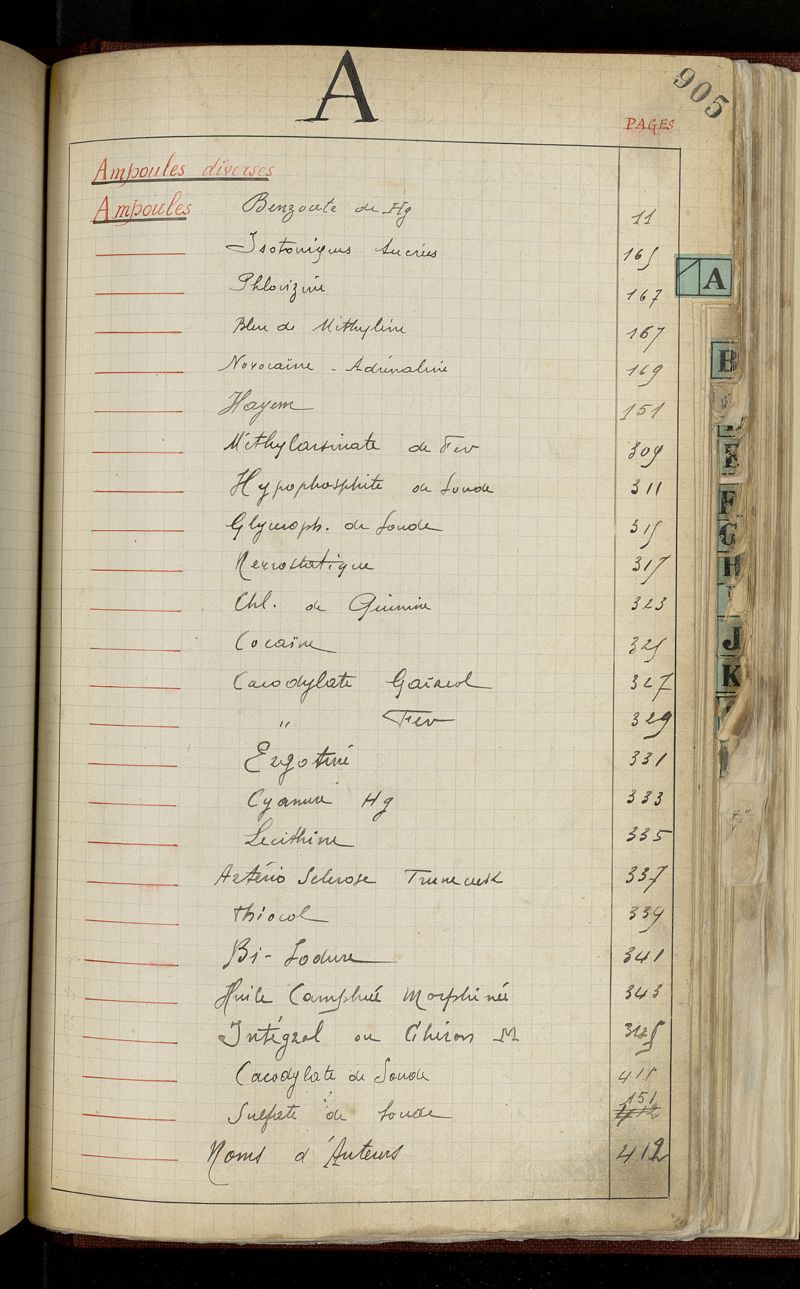 A
905
PAGES
Ampoules diverses
Ampoules Benzoate de Hg 11
Isotoniques Sucrées 165
Phlorizine 167
Bleu de Méthylène 167
Novocaïne - Adrénaline 169
Hayem 151
Méthylarsinate de Fer 309
Hypophosphite de Soude 311
Glyceroph. de Soude 315
Nevrostatique 317
Chl. de Quinine 323
Cocaïne 325
Cacodylate Gaïacol 327
" Fer 329
Ergotine 331
Cyanure Hg 333
Lecithine 335
Artério Sclerose Trunecek 337
Thiocol 339
Bi-Iodure 341
Huile Camphrée Morphinée 343
Intégral ou M 345
Cacodylate de Soude 411
Sulfate de Soude 151 412
Noms d'Auteurs 412
A
B
E
F
G
H
I
J
K